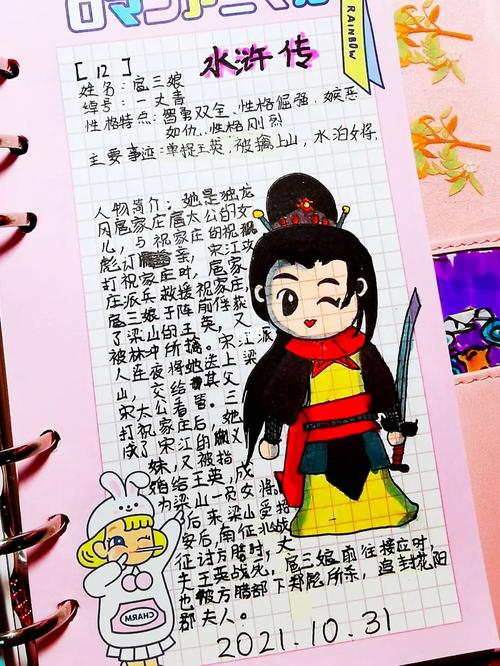 RAINBOW
水浒传
[12]
姓名：扈三娘
绰号：一丈青
性格特点：智勇双全、性格倔强、嫉恶
如仇、性格刚烈
主要事迹：单捉王英，被擒上山，水泊女将。
人物简介：她是独龙
冈扈家庄扈太公的女
儿，与祝家庄的祝
彪订亲，宋江攻
打祝家庄时，扈家
庄派兵救援祝家庄，
扈三娘于阵前俘获
了梁山的王英，又
被林冲所擒。宋江派
人连夜将她送上梁
山，交给其父
宋太公看管。三
打祝家庄后，她
成了宋江的义
妹，又被指
婚给王英，成
为梁山一员女将。
后来梁山受招
安后，南征北战
征讨方腊时，丈
夫王英战死，扈三娘前往接应时，
也被方腊部下郑彪所杀，追封花阳
郡夫人。
CHARM
2021.10.31